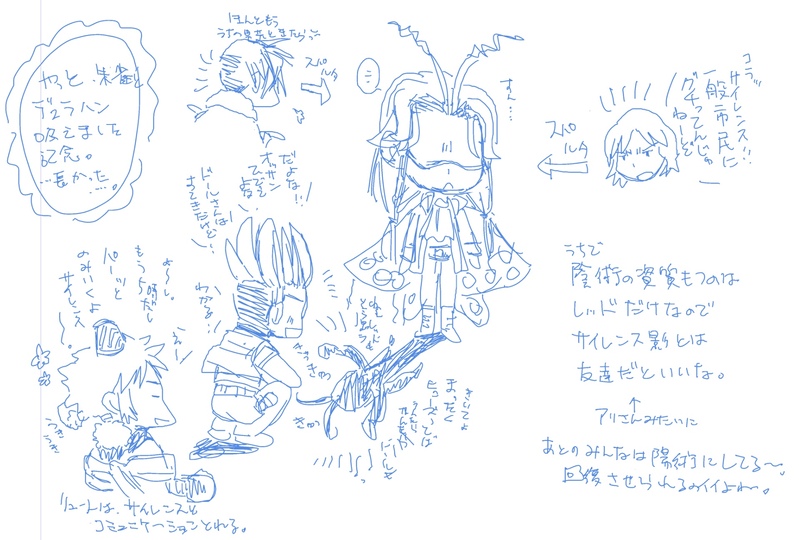 やっと、朱雀と
デュラハン
吸えました
記念。
…長かった……。
ほんともう
スパルタ
すん…
コラッ
サイレンス!!
一般市民に
グチってんじゃ
ねーぞ
スパルタ
だよな!!
オッサン
ドールさんは
わかる!!
よーし。
もう5時だし
パーッと
のみいくよ
サイレンスー。
えー!
うき
うき
きゅっ
きゅっ
きいてよ
まったく
ヒューズってば
リュートは、サイレンスと
コミュニケーションとれる。
うちで
陰術の資質もつのは
レッドだけなので
サイレンス影とは
友達だといいな。
↑
アリさんみたいに
あとのみんなは陽術にしてる〜。
回復させられるのイイよね。